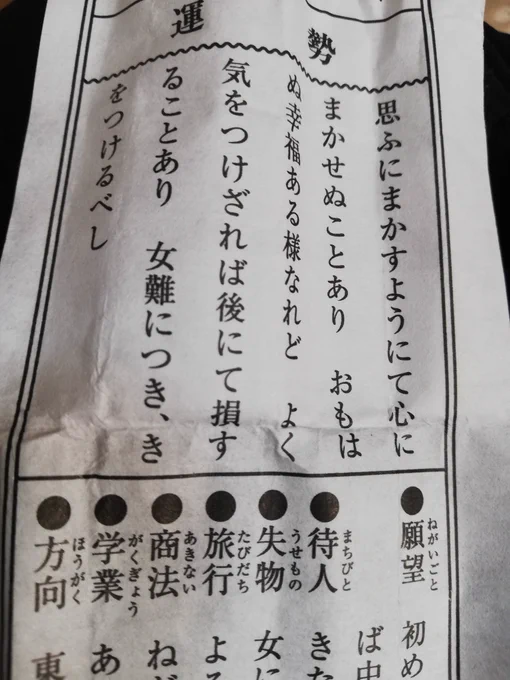 運勢
思ふにまかすようにて心に
まかせぬことあり　おもは
ぬ幸福ある様なれど　よく
気をつけざれば後にて損す
ることあり　女難につき、き
をつけるべし
●願望 ねがいごと 初め
ば中
●待人 まちびと きた
●失物 うせもの 女に
●旅行 たびだち よろ
●商法 あきない ねが
●学業 がくぎょう あ
●方向 ほうがく 東